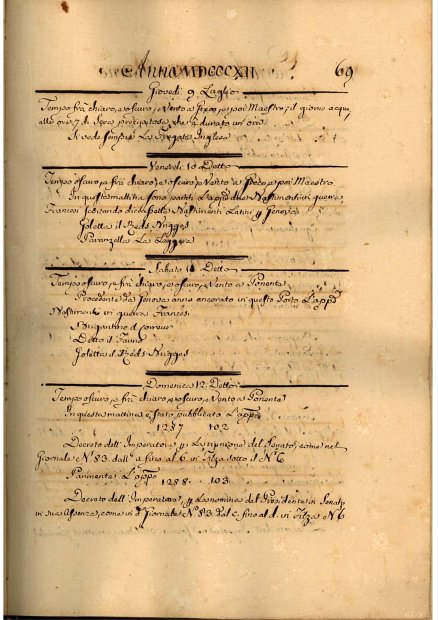 Anno MDCCCXII 69
Giovedi 9 Luglio
Tempo frà chiaro, e oscuro, e Vento a e poi Maestro, il giorno acqua
alle ore 7 di Sera precipitosa, che è durato un'ora
Si vede sempre La Fregata Inglese
Venerdi 10 Detto
Tempo oscuro, e frà chiaro, e oscuro, e Vento a e poi Maestro
In questa mattina sono partiti L'app. due Bastimenti in guerra
Francesi scortando Bastimenti Latini p Genova
Goletta il
Paranzella La Leggera
Sabato 11 Detto
Tempo oscuro, e frà chiaro, e oscuro, e Vento a Ponente
Procedente da Genova anno ancorato in questo Porto L'app.
Bastimenti in guerra Francesi
Brigantino d
Detto d Fauno
Goletta d
Domenica 12 Detto
Tempo oscuro, e frà chiaro, e oscuro, e Vento a Ponente
In questa mattina è stato pubblicato L'app.
1287 102
Decreto dell' Imperatore p La riunione del Senato, come nel
Giornale N° 83 dall' a fino al 6 in Filza sotto il N° 6
Parimente L'app.
1288 103
Decreto dell' Imperatore, p La nomina del Presidente in Senato
in sua assenza, come in d Giornale N° 83 fino al d. in Filza N° 6